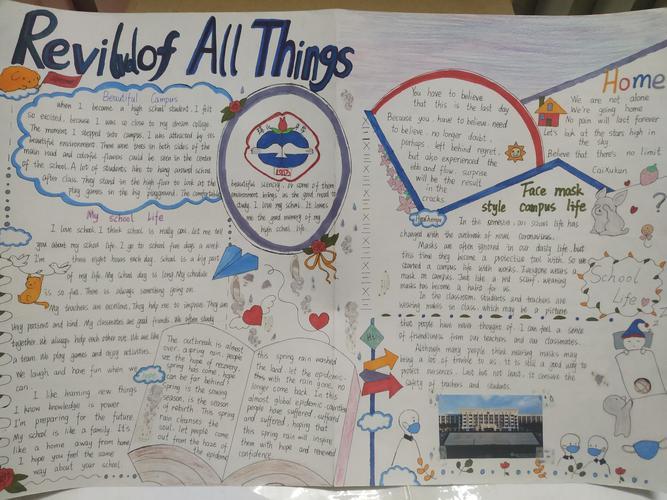 Revival of All Things
Beautiful Campus
When I became a high school student, I felt
so excited, because I was so close to my dream college.
The moment I stepped into campus, I was attracted by its
beautiful environment. There were trees in both sides of the
main road and colorful flowers could be seen in the center
of the school. A lot of students like to hang around school
after class. They stand in the high floor to look at the
play games in the big playground. The
1917
beautiful scenery. Or some of them
environment brings us the good mood to
study. I love my school. It leaves
me the good memory of my
high school life.
My school Life
I love school. I think school is really fun. Let me tell
you about my school life. I go to school five days a week
three eight hours each day. School is a big part
of my life. My school day is long. My schedule
is so full. There is always something going on.
My teachers are excellent. They help me to improve. They are
Very patient and kind. My classmates are good friends. We often study
together. We always help each other out. We are like
a team. We play games and enjoy activities.
We laugh and have fun when we
can.
I like learning new things
I know knowledge is power
I'm preparing for the future.
My school is like a family. It's
like a home away from home
I hope you feel the same
way about your school.
The outbreak is almost
over. a spring rain, people
see the hope of recovery.
spring has come, hope
can be far behind?
spring is the sowing
season, is the season
of rebirth. This spring
rain cleanses the
soul, let people come
out from the haze of
the epidemic
this spring rain washed
the land, let the epidemic
flow with the rain gone, no
longer come back. In this
almost global epidemic, countless
people have suffered, suffused
and suffered, hoping that
this spring rain will inspire
them with hope and renewed
confidence.
You have to believe
that this is the last day
Because you have to believe, need
to believe, no longer doubt,
perhaps, left behind regret,
but also experienced the
ebb and flow. surprise
will be the result
in the
cracks.
Home
We are not alone
We're going home
No pain will last forever
Let's look at the stars high in
the sky
Believe that there's no limit
CaiXukun
Face mask
style campus life
In the semester, our school life has
changed with the outbreak of novel coronavirus.
Masks are often ignored in our daily life, but
this time they become a protective tool with. So we
started a campus life with masks. Everyone wears a
mask on campus. Just like a red scarf, wearing
masks has become a habit for us.
In the classroom, students and teachers are
wearing masks in class, which may be a picture
School
Life
that people have never thought of. I can feel a sense
of friendliness from our teachers and our classmates.
Although many people think wearing masks may
be a lot of trouble to us, it is still a good way to
protect ourselves. Last but not least, it conserve the
safety of teachers and students.
Hi